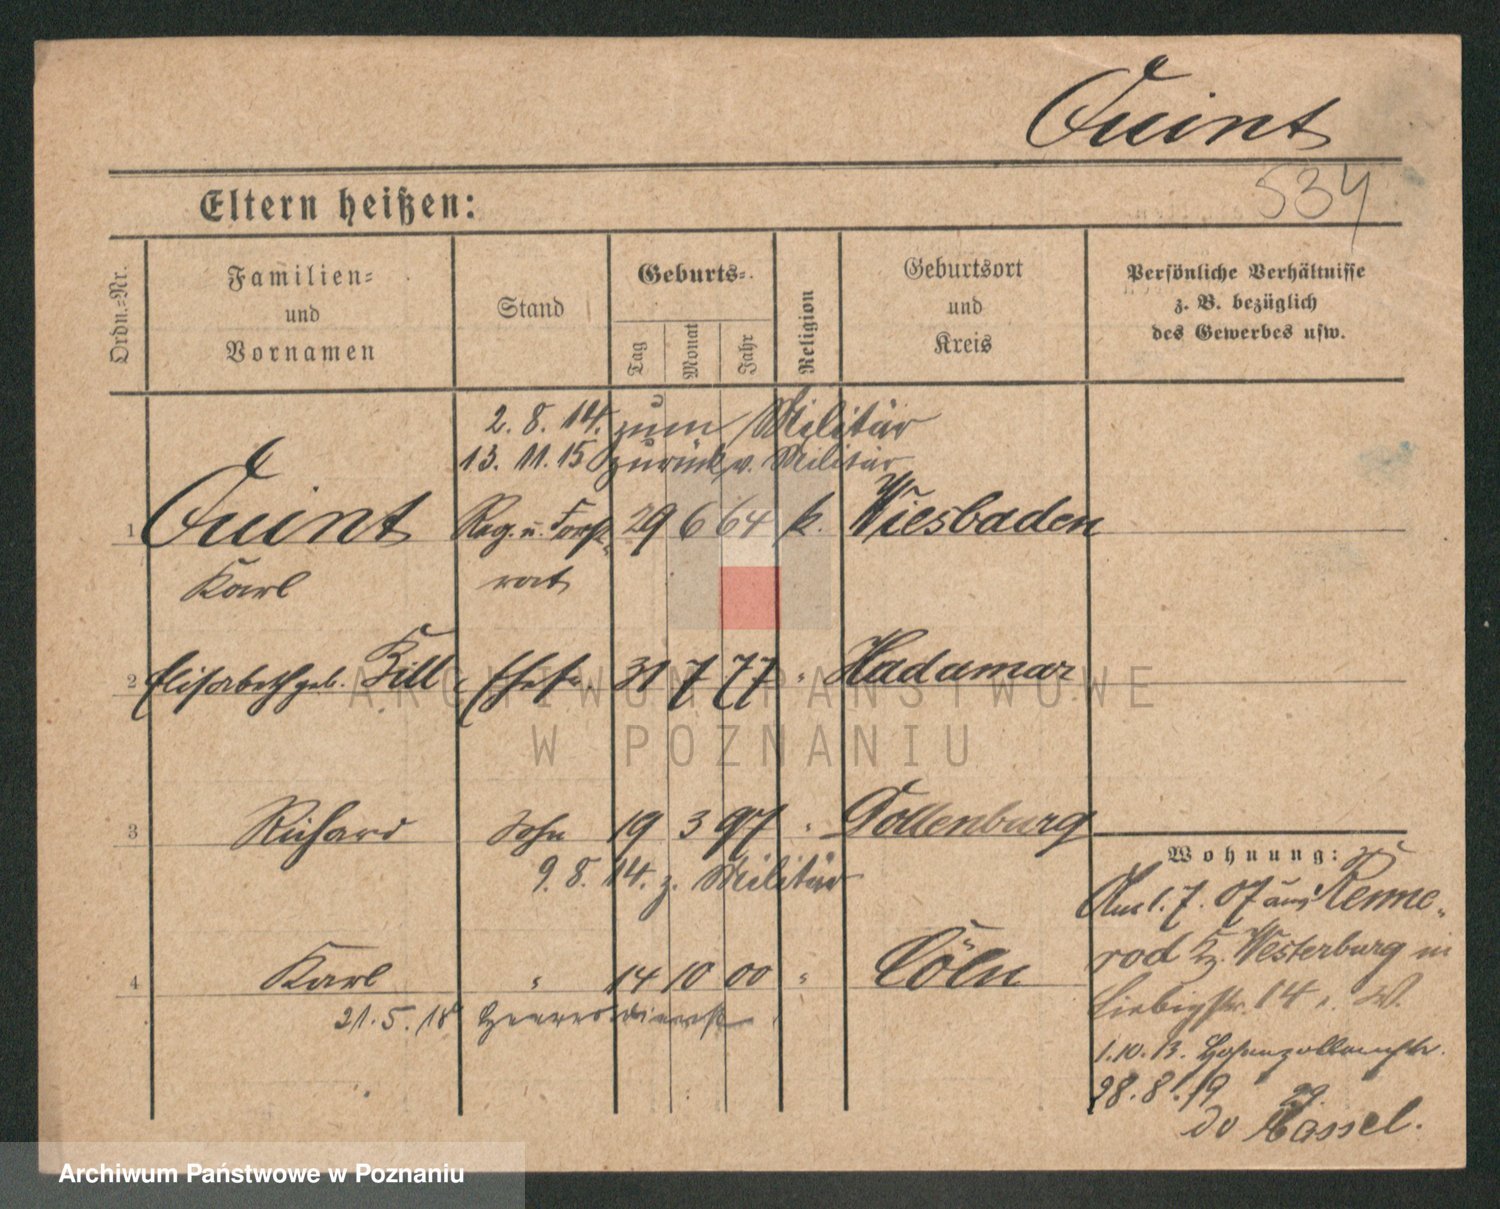 Quint
534
Eltern heißen:
Ordn.=Nr.
Familien=
und
Vornamen
Stand
Geburts=
Tag
Monat
Jahr
Religion
Geburtsort
und
Kreis
Persönliche Verhältnisse
z. B. bezüglich
des Gewerbes usw.
2. 8. 14. zum Militär
13. 11. 15 zurück v. Militär
1 Quint Reg. u. Forst- 29 6 64 k. Wiesbaden
Karl rat
2 Elisabeth geb. Kill Ehefr. 31 7 77 " Hadamar
3 Richard Sohn 19 3 97 "
9. 8. 14. z. Militär
4 Karl " 14 10 00 " Cöln
21. 5. 18 Heeresdienst
Wohnung:
Am 1. 7. 07 aus Renne-
rod Kr. Westerburg in
Liebigstr. 14. W.
1.10.13. Hohenzollernstr.
29.
28. 8. 19
do Cassel.
ARCHIWUM PAŃSTWOWE
W POZNANIU
Archiwum Państwowe w Poznaniu